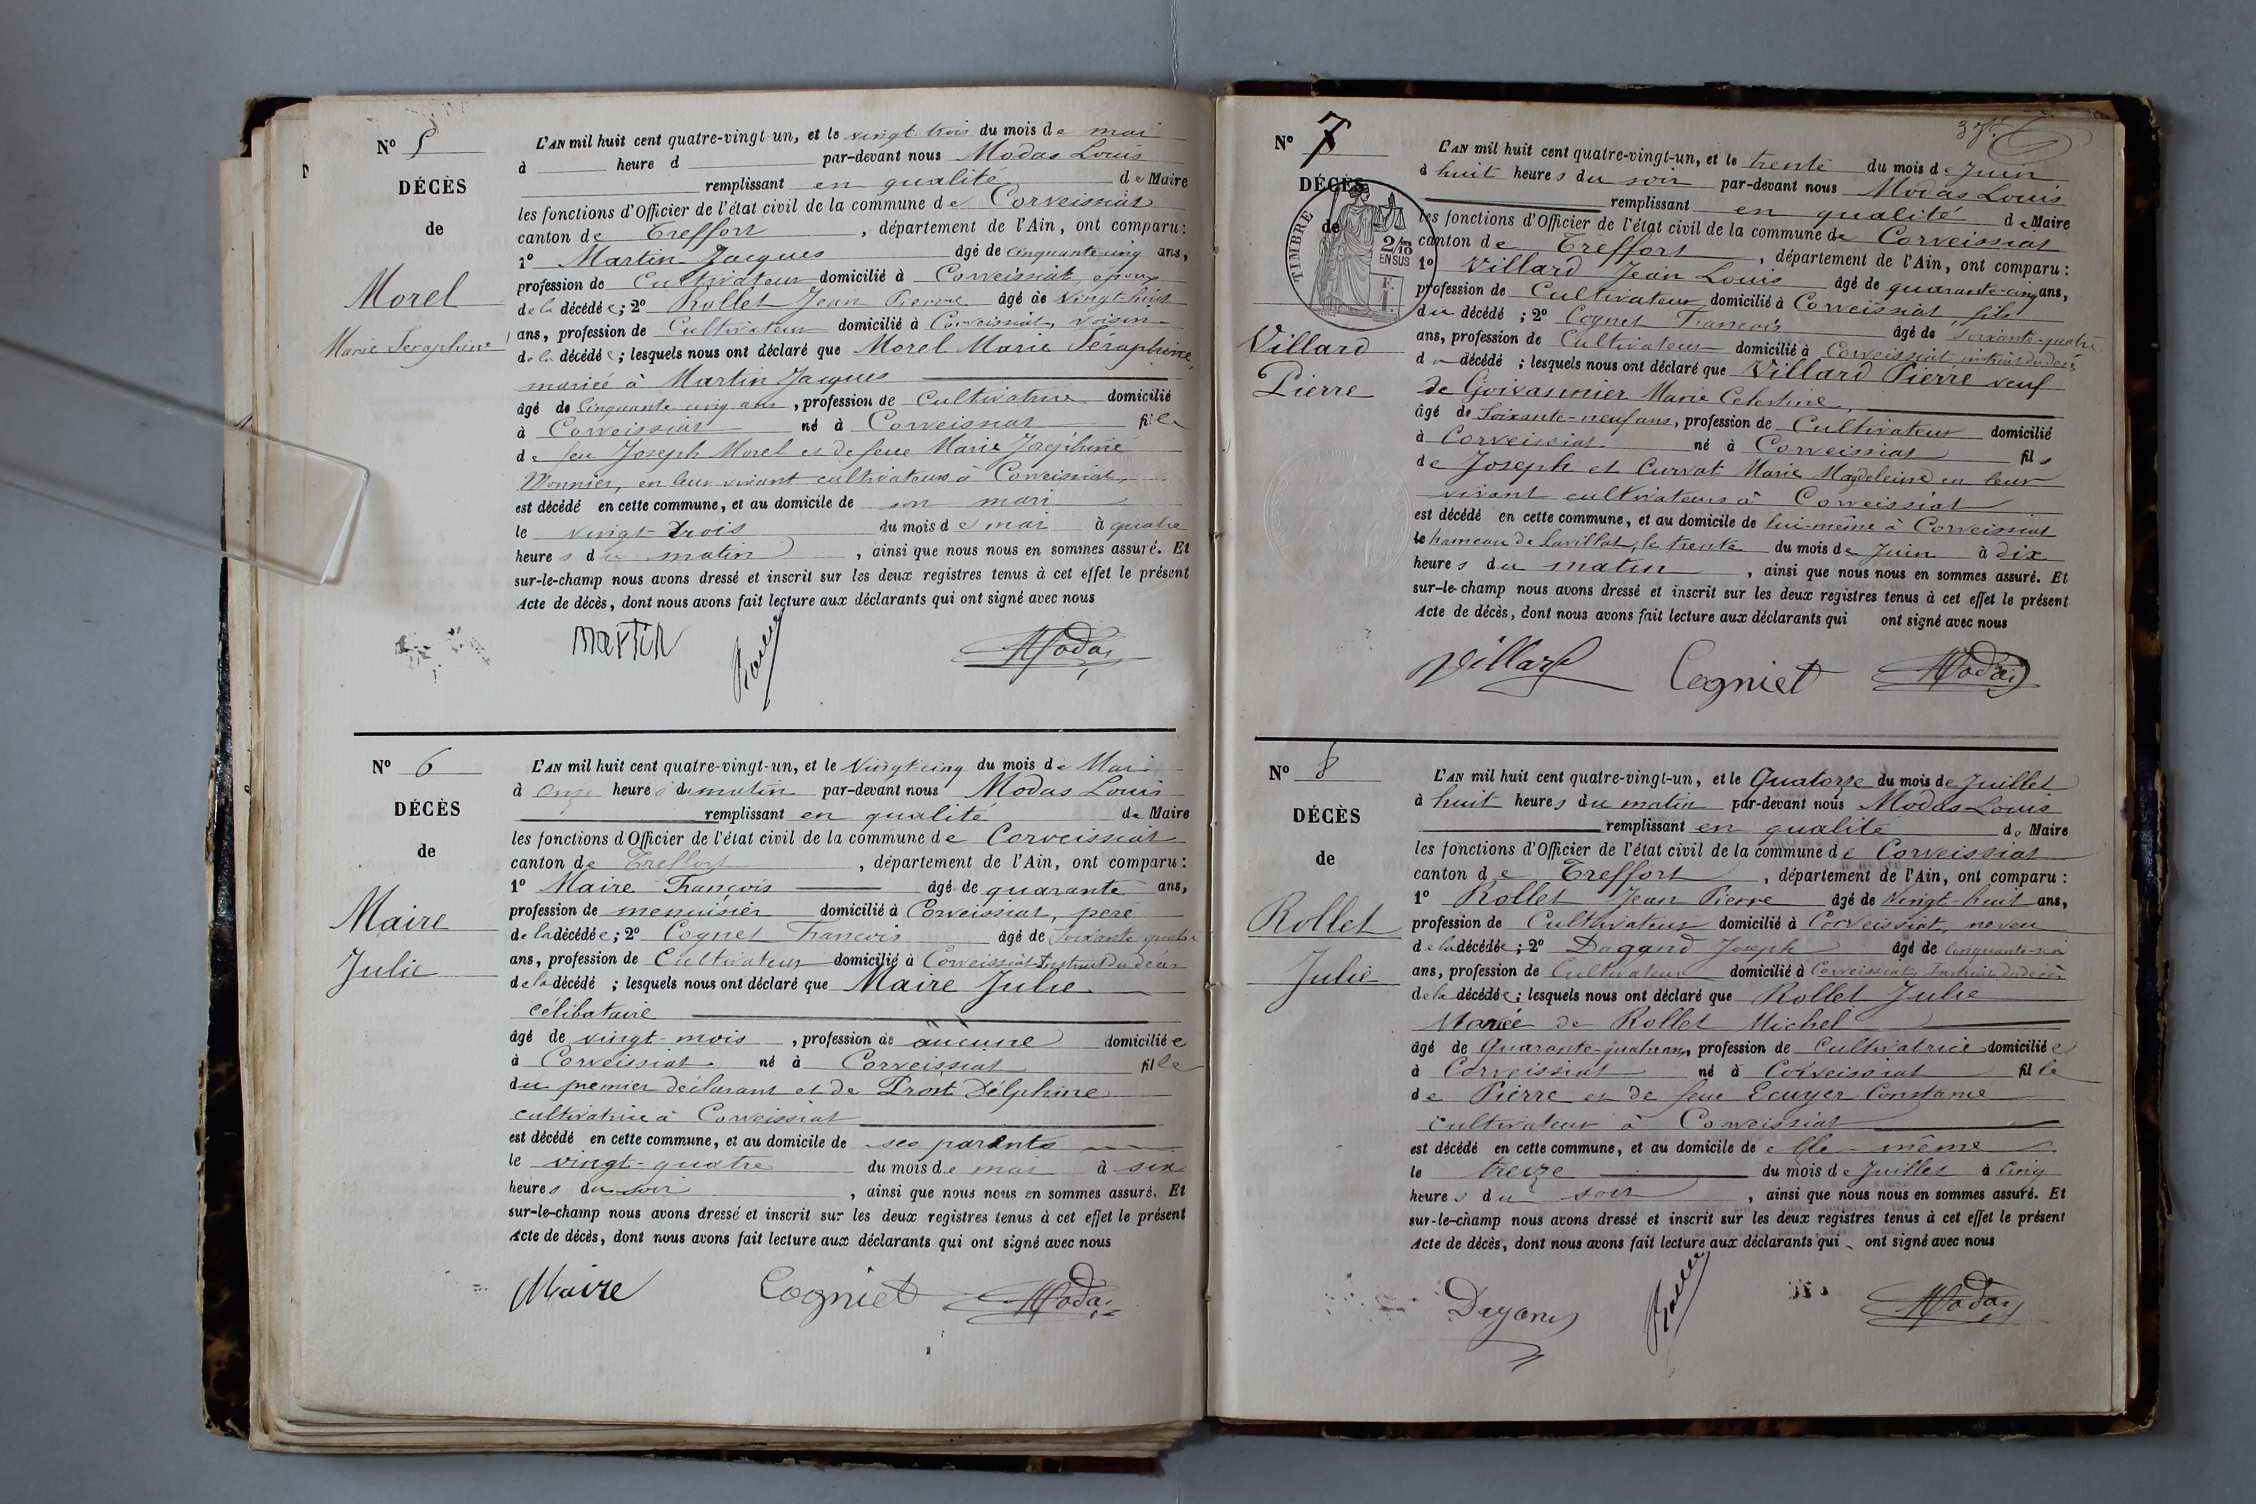 N° 5
DÉCÈS
de
Morel
Marie Séraphine
L'AN mil huit cent quatre-vingt-un, et le vingt trois du mois de mai
à heure d par-devant nous Modas Louis
remplissant en qualité de Maire
les fonctions d'Officier de l'état civil de la commune de Corveissiat
canton de Treffort, département de l'Ain, ont comparu:
1° Martin Jacques âgé de cinquante-cinq ans,
profession de Cultivateur domicilié à Corveissiat, époux
de la décédée; 2° Rollet Jean Pierre âgé de vingt-huit
ans, profession de Cultivateur domicilié à Corveissiat, voisin
de la décédée; lesquels nous ont déclaré que Morel Marie Séraphine,
mariée à Martin Jacques
âgé de Cinquante cinq ans, profession de Cultivatrice domicilié
à Corveissiat né à Corveissiat fille
de feu Joseph Morel et de feue Marie Joséphine
Monnier, en leur vivant cultivateurs à Corveissiat,
est décédé en cette commune, et au domicile de son mari
le vingt-trois du mois de mai à quatre
heures du matin, ainsi que nous nous en sommes assuré. Et
sur-le-champ nous avons dressé et inscrit sur les deux registres tenus à cet effet le présent
Acte de décès, dont nous avons fait lecture aux déclarants qui ont signé avec nous
martin Modas
N° 6
DÉCÈS
de
Maire
Julie
L'AN mil huit cent quatre-vingt-un, et le Vingt-cinq du mois de Mai
à onze heures du matin par-devant nous Modas Louis
remplissant en qualité de Maire
les fonctions d'Officier de l'état civil de la commune de Corveissiat
canton de Treffort, département de l'Ain, ont comparu:
1° Maire François âgé de quarante ans,
profession de menuisier domicilié à Corveissiat, père
de la décédée; 2° Cognet François âgé de soixante quatre
ans, profession de Cultivateur domicilié à Corveissiat Instruit du décès
de la décédé; lesquels nous ont déclaré que Maire Julie
célibataire
âgé de vingt-mois, profession de aucune domiciliée
à Corveissiat né à Corveissiat fille
du premier déclarant et de Prost Délphine
cultivatrice à Corveissiat
est décédé en cette commune, et au domicile de ses parents
le vingt-quatre du mois de mai à six
heures du soir, ainsi que nous nous en sommes assuré. Et
sur-le-champ nous avons dressé et inscrit sur les deux registres tenus à cet effet le présent
Acte de décès, dont nous avons fait lecture aux déclarants qui ont signé avec nous
Maire Cogniet Modas
N° 7
DÉCÈS
de
TIMBRE
2/10
EN SUS
Villard
Pierre
L'AN mil huit cent quatre-vingt-un, et le trente du mois de Juin
à huit heures du soir par-devant nous Modas Louis
remplissant en qualité de Maire
les fonctions d'Officier de l'état civil de la commune de Corveissiat
canton de Treffort, département de l'Ain, ont comparu:
1° Villard Jean Louis âgé de quarante-cinq ans,
profession de Cultivateur domicilié à Corveissiat fils
du décédé; 2° Cognet François âgé de soixante-quatre
ans, profession de Cultivateur domicilié à Corveissiat instruit du décès
d décédé; lesquels nous ont déclaré que Villard Pierre veuf
de Marie Celestine,
âgé de Soixante-neuf ans, profession de Cultivateur domicilié
à Corveissiat né à Corveissiat fils
de Joseph et Curvat Marie Magdeleine en leur
vivant cultivateurs à Corveissiat
est décédé en cette commune, et au domicile de lui-même à Corveissiat
le hameau de Lavillat, le trente du mois de Juin à dix
heures du matin, ainsi que nous nous en sommes assuré. Et
sur-le-champ nous avons dressé et inscrit sur les deux registres tenus à cet effet le présent
Acte de décès, dont nous avons fait lecture aux déclarants qui ont signé avec nous
Villard Cogniet Modas
N° 8
DÉCÈS
de
Rollet
Julie
L'AN mil huit cent quatre-vingt-un, et le Quatorze du mois de Juillet
à huit heures du matin par-devant nous Modas Louis
remplissant en qualité de Maire
les fonctions d'Officier de l'état civil de la commune de Corveissiat
canton de Treffort, département de l'Ain, ont comparu:
1° Rollet Jean Pierre âgé de Vingt-huit ans,
profession de Cultivateur domicilié à Corveissiat, neveu
de la décédée; 2° Dagand Joseph âgé de
ans, profession de Cultivateur domicilié à Corveissiat, Instruit du décès
de la décédée; lesquels nous ont déclaré que Rollet Julie
Mariée de Rollet Michel
âgé de Quarante-quatre ans, profession de Cultivatrice domiciliée
à Corveissiat né à Corveissiat fille
de Pierre et de feue Ecuyer Constance
cultivateur à Corveissiat
est décédé en cette commune, et au domicile de elle-même
le treize du mois de Juillet à Cinq
heures du soir, ainsi que nous nous en sommes assuré. Et
sur-le-champ nous avons dressé et inscrit sur les deux registres tenus à cet effet le présent
Acte de décès, dont nous avons fait lecture aux déclarants qui ont signé avec nous
Modas